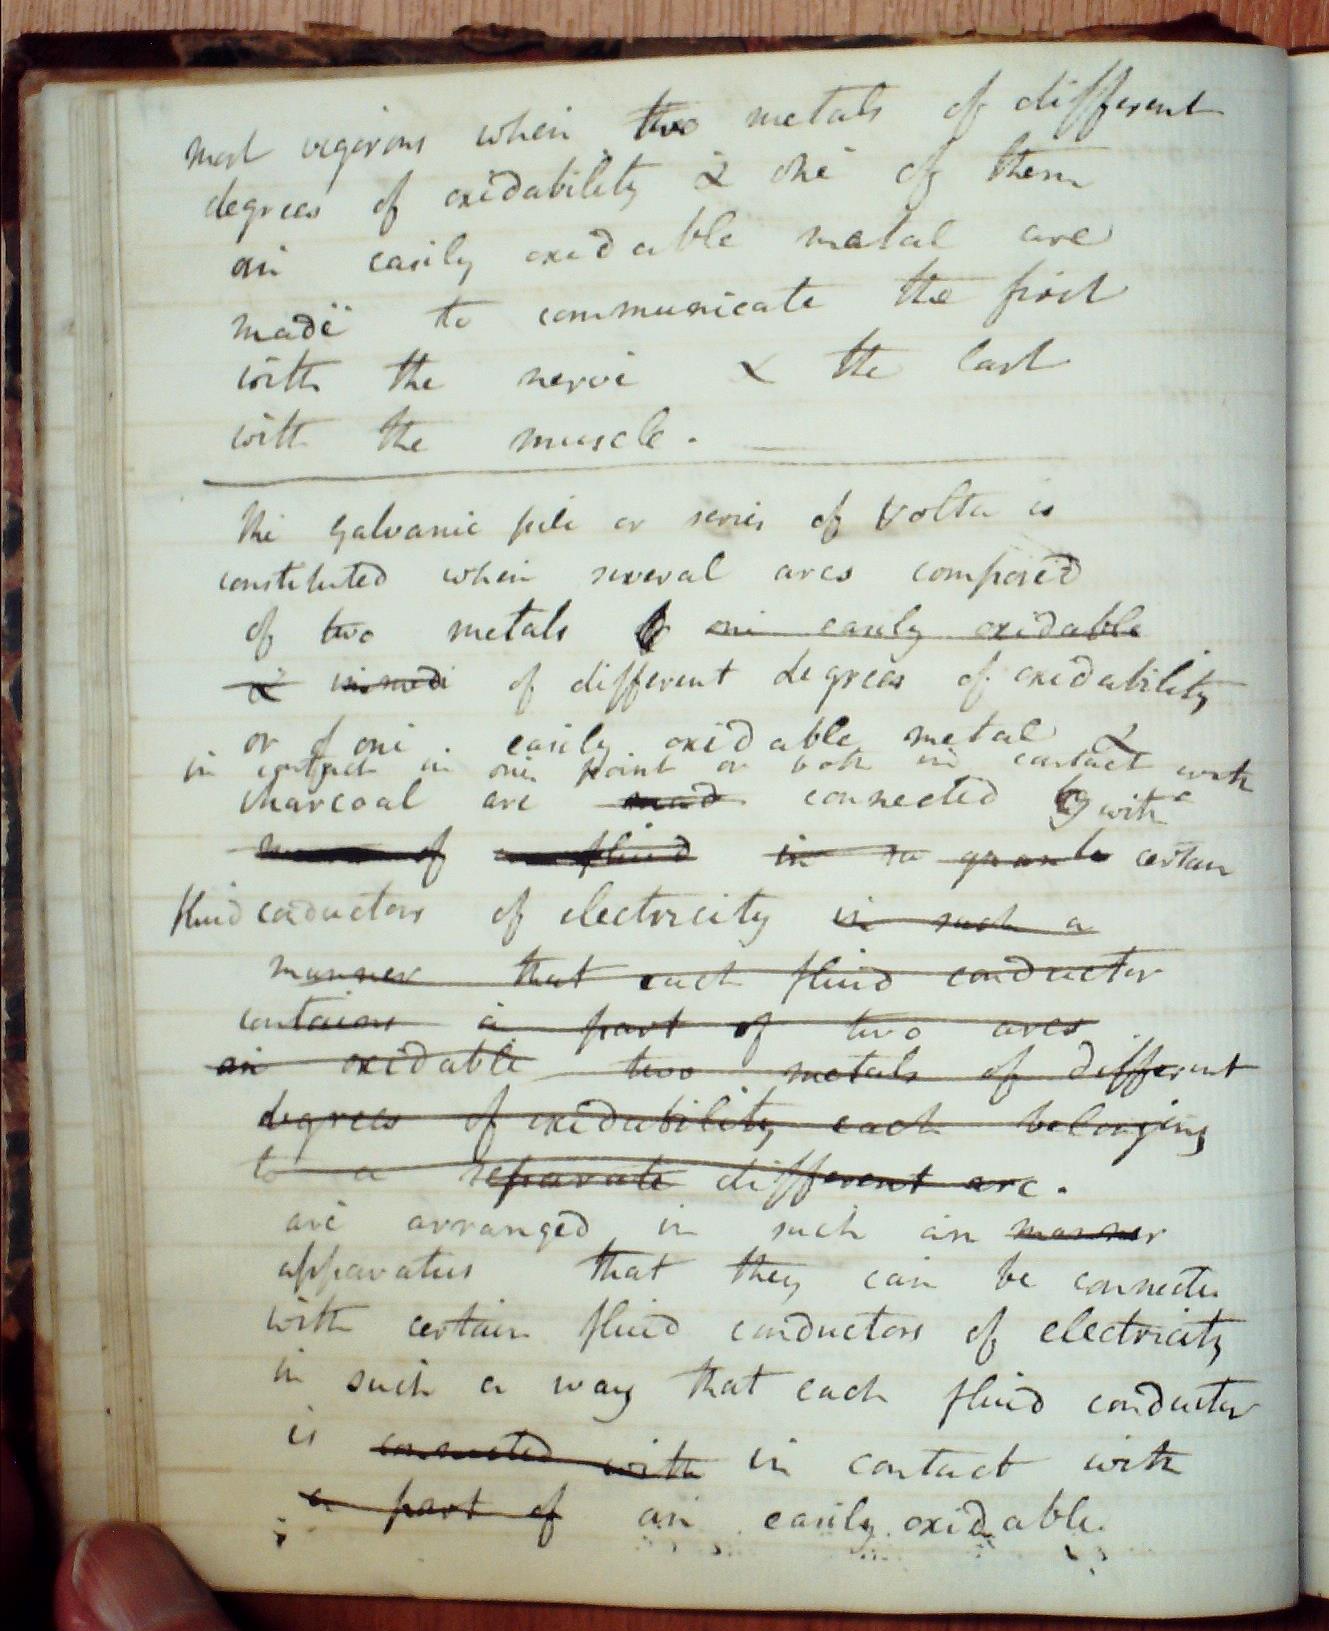 most vigorous when two metals of different
degrees of oxidability & one of them
an easily oxidable metal are
made to communicate the first
with the nerve & the last
with the muscle.
The galvanic pile or series of Volta is
constituted when several arcs composed
of two metals one easily oxidable
& of different degrees of oxidability
or of one easily oxidable metal &
in contact in one point or both in contact with
charcoal are made connected by with
means of fluid in certain
fluid conductors of electricity in such a
manner that each fluid conductor
contains a part of two arcs
an oxidable two metals of different
degrees of oxidability each belonging
to a separate different arc.
are arranged in such an manner
apparatus that they can be connected
with certain fluid conductors of electricity
in such a way that each fluid conductor
is connected with in contact with
a part of an easily oxidable